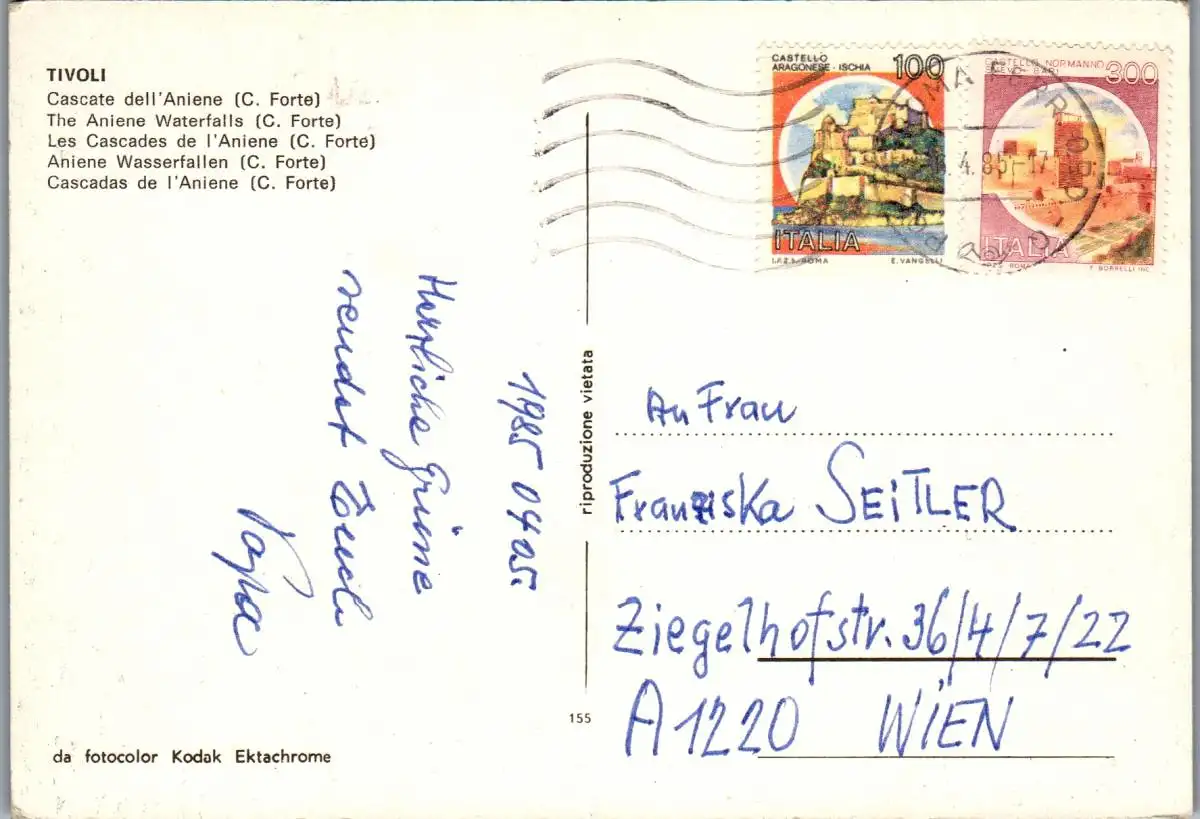 TIVOLI
Cascate dell'Aniene (C. Forte)
The Aniene Waterfalls (C. Forte)
Les Cascades de l'Aniene (C. Forte)
Aniene Wasserfallen (C. Forte)
Cascadas de l'Aniene (C. Forte)
CASTELLO
ARAGONESE - ISCHIA 100
ITALIA
I.P.Z.S. ROMA E. VANGELLI
CASTELLO NORMANNO
SVEVO - BARI 300
ITALIA
ROMA T. BORRELLI INC.
ROMA
4.85-17
1985 04 05.
Herzliche Grüsse
sendet Euch
Papa
riproduzione vietata
An Frau
Franziska SEITLER
Ziegelhofstr. 36/4/7/22
A 1220 WIEN
155
da fotocolor Kodak Ektachrome